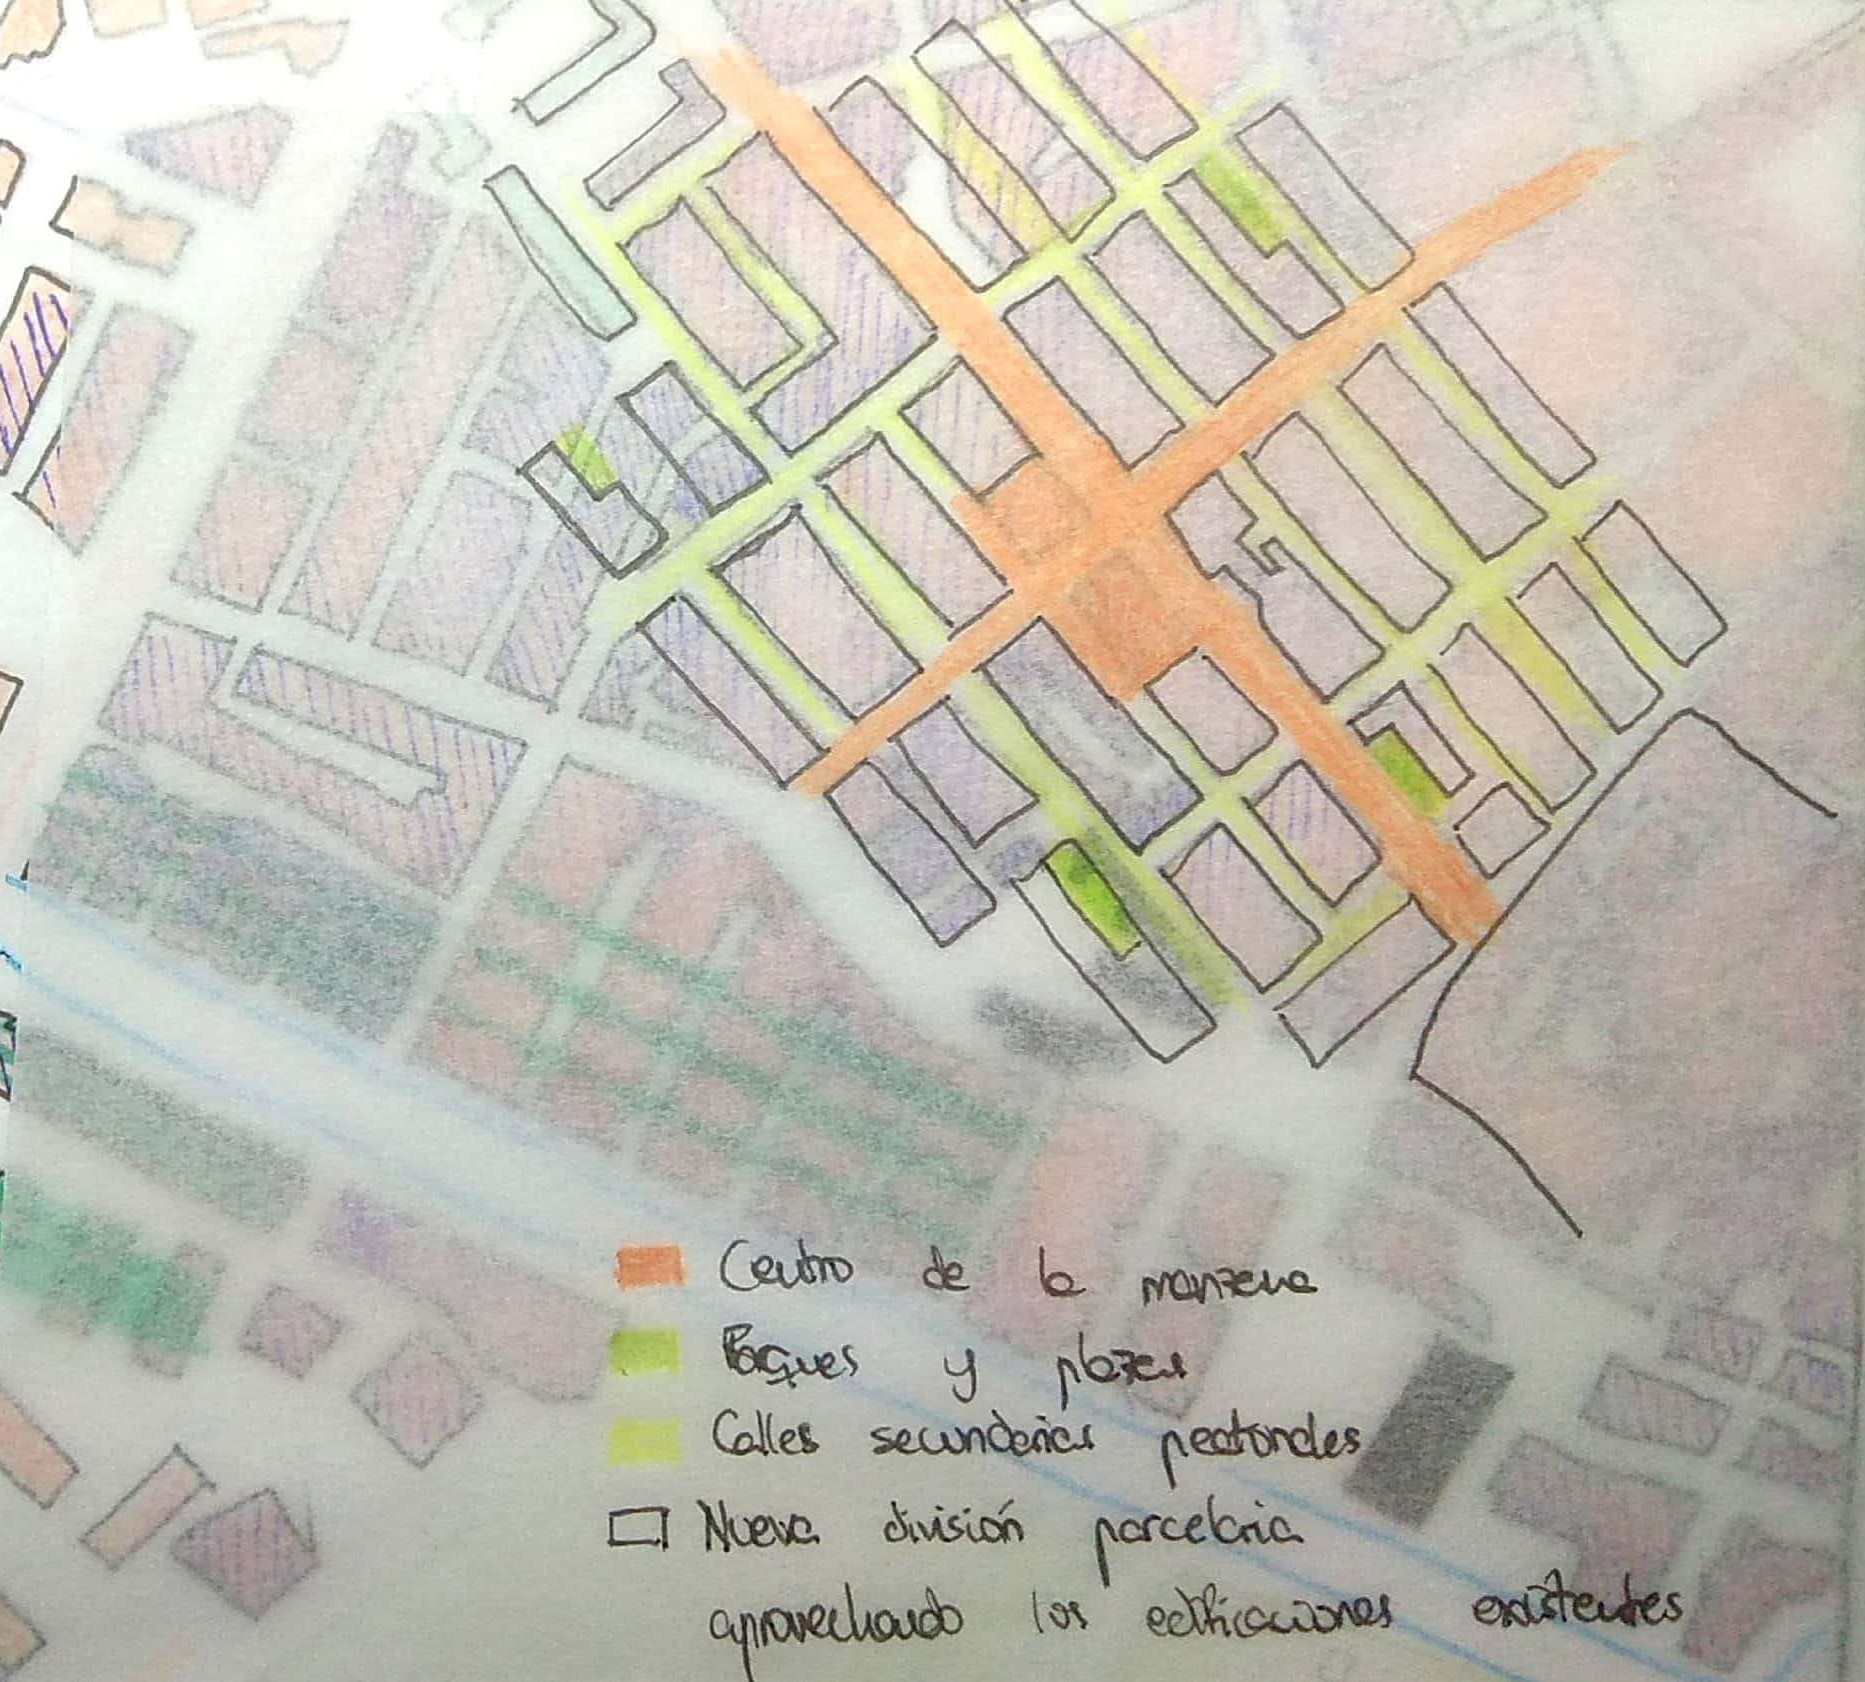 Centro de la manzana
Parques y plazas
Calles secundarias peatonales
Nueva división parcelaria
aprovechando los edificaciones existentes